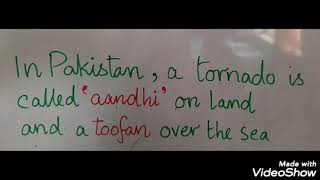 In Pakistan, a tornado is
called 'aandhi' on land
and a toofan over the sea
Made with
VideoShow